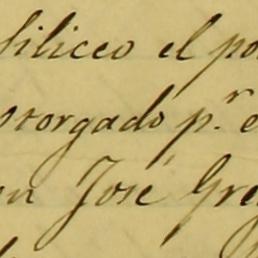 Siliceo el po
otorgado p.r e
on José Gre